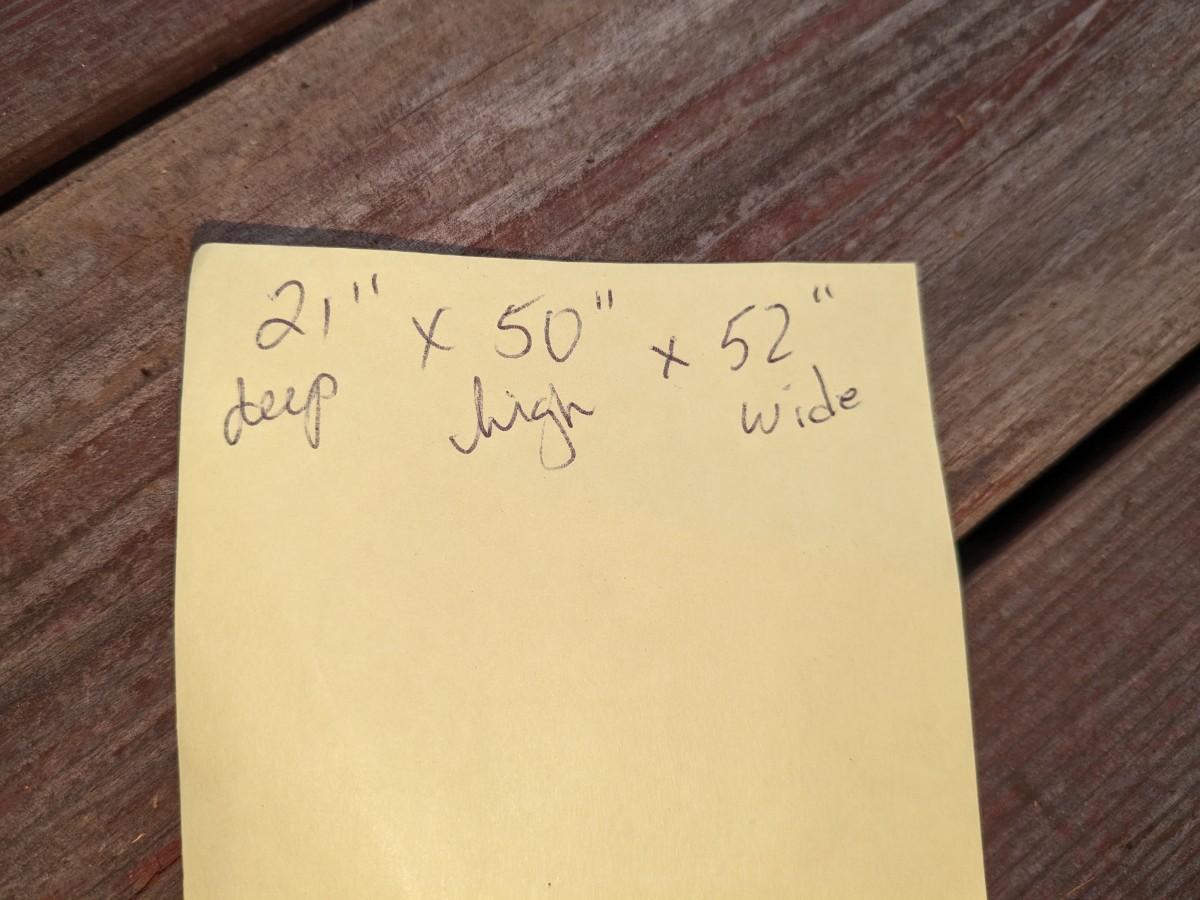 21" x 50" x 52"
deep high wide